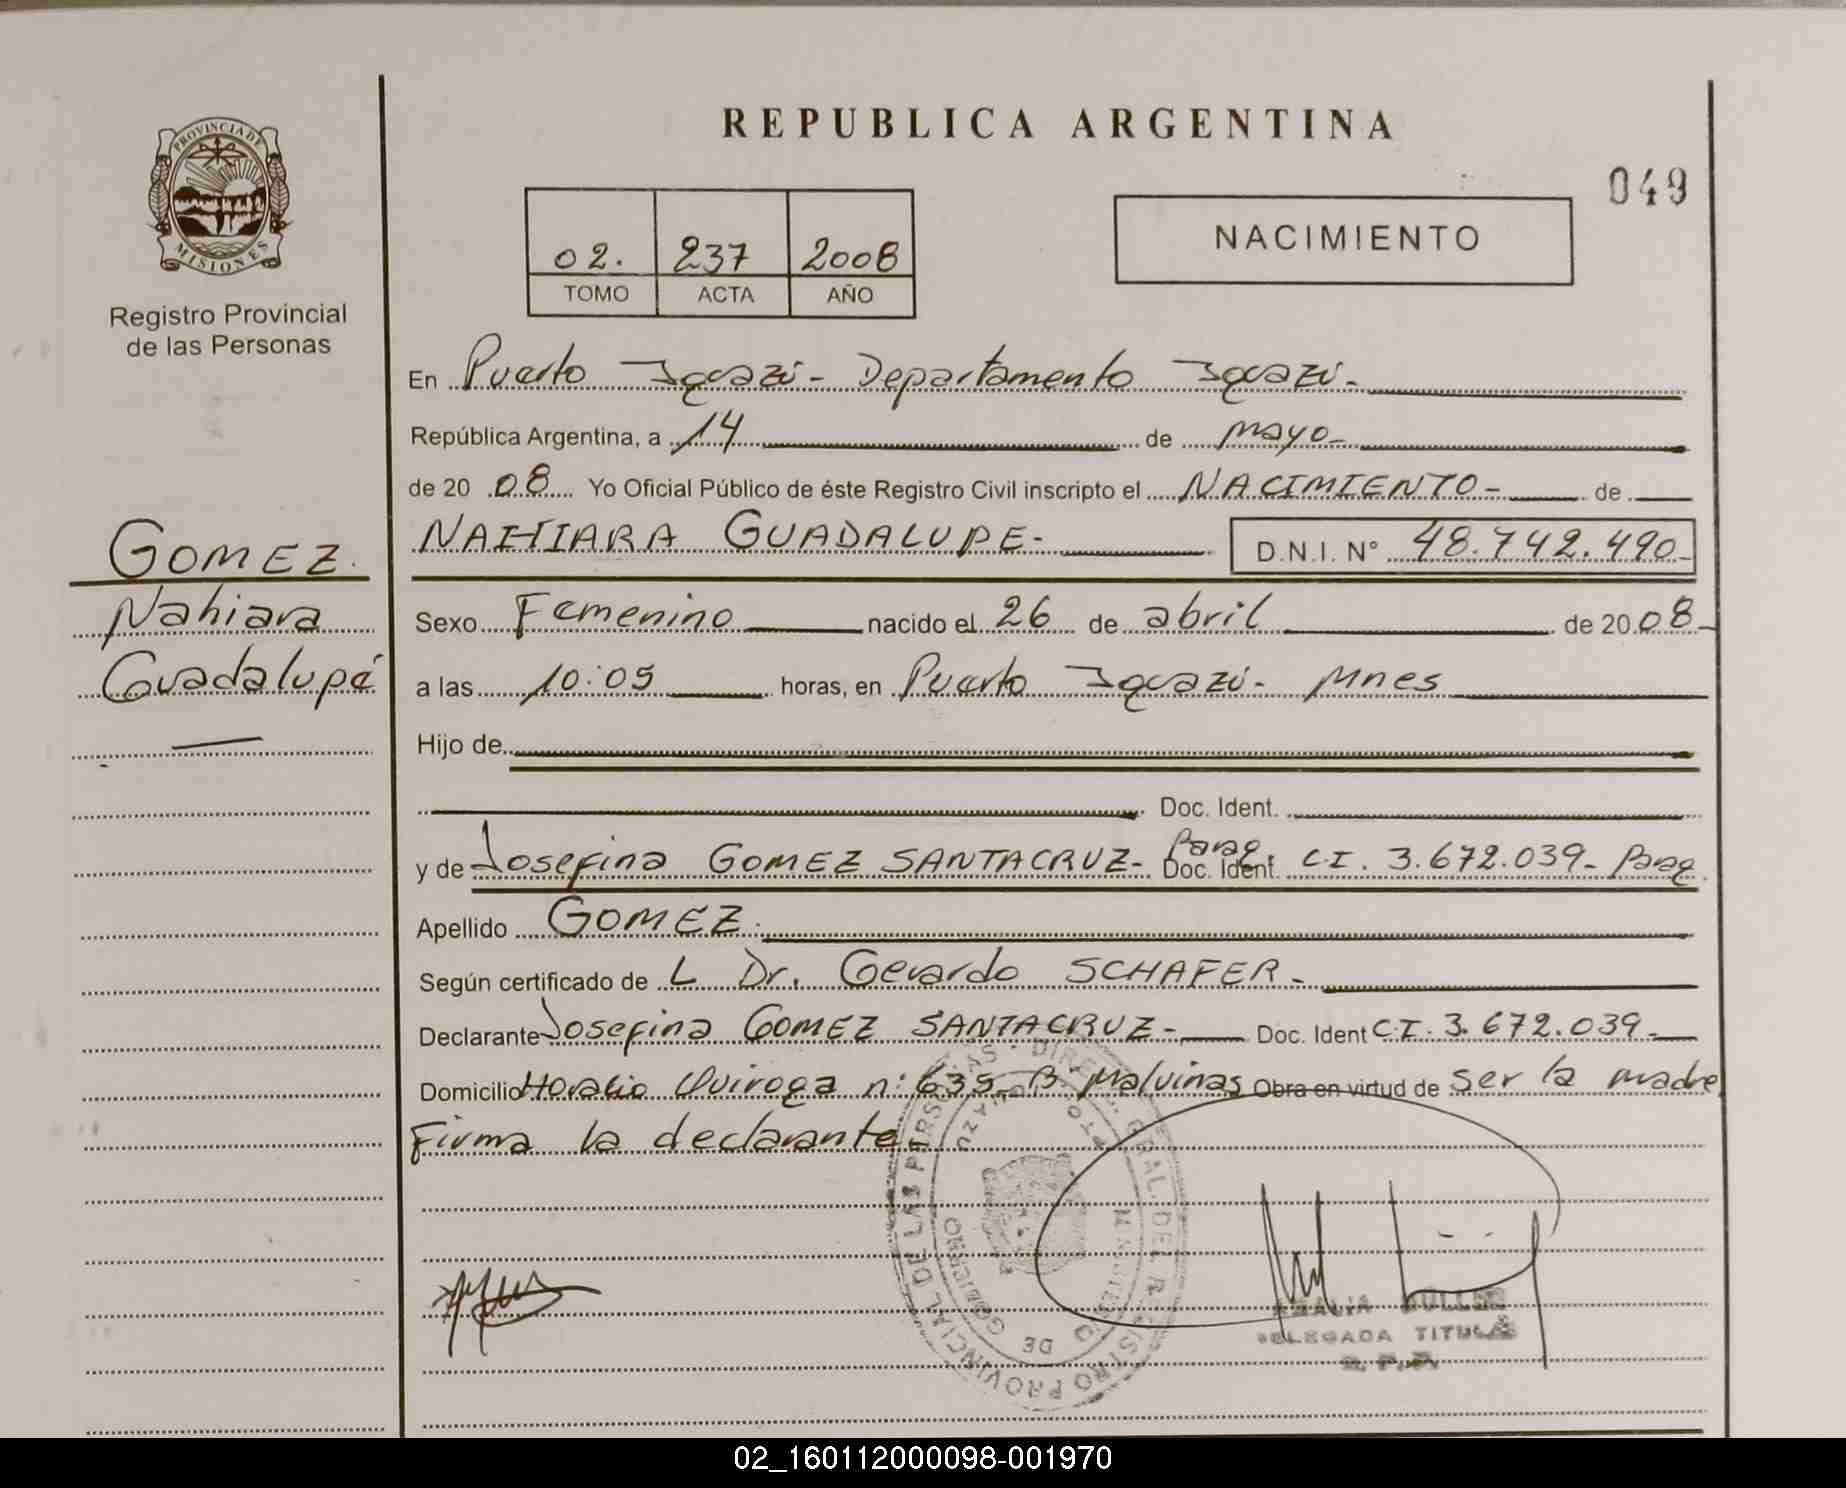 REPUBLICA ARGENTINA
049
PROVINCIA DE
MISIONES
Registro Provincial
de las Personas
02. 237 2008
TOMO ACTA AÑO
NACIMIENTO
En Puerto Iguazú - Departamento Iguazú -
República Argentina, a 14 de mayo -
de 20 08 Yo Oficial Público de éste Registro Civil inscripto el NACIMIENTO - de
GOMEZ.
Nahiara
Guadalupe
NAHIARA GUADALUPE - D.N.I. N° 48.742.490 -
Sexo Femenino nacido el 26 de abril de 20 08 -
a las 10:05 horas, en Puerto Iguazú - Mnes
Hijo de
Doc. Ident.
y de Josefina GOMEZ SANTACRUZ - Parag. Doc. Ident. C.I. 3.672.039 - Parag.
Apellido GOMEZ.
Según certificado de L Dr. Gerardo SCHAFER -
Declarante Josefina GOMEZ SANTACRUZ - Doc. Ident C.I. 3.672.039 -
Domicilio Horacio Quiroga n: 635 B. Malvinas Obra en virtud de ser la madre
Firma la declarante.
DIREC. GRAL. DEL REGISTRO PROVINCIAL DE LAS PERSONAS
MINISTERIO DE GOBIERNO
PTO. IGUAZU
DELEGADA TITULAR
R. P. P.
02_160112000098-001970